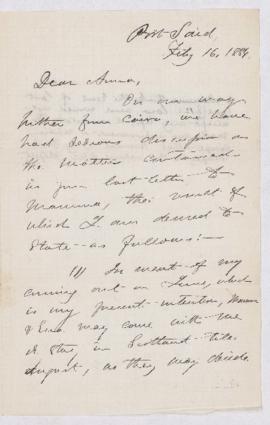 Port Said,
Feby 16, 1886.
Dear Anna,
On our way
hither from Cairo, we have
had serious discussion as
the matter contained
in your last letter to
Mamma, the result of
which I am desired to
state as follows:—
In event of my
coming out in June, which
is my present intention, Mamma
& may come with me
or stay in Scotland till
August, as they may decide